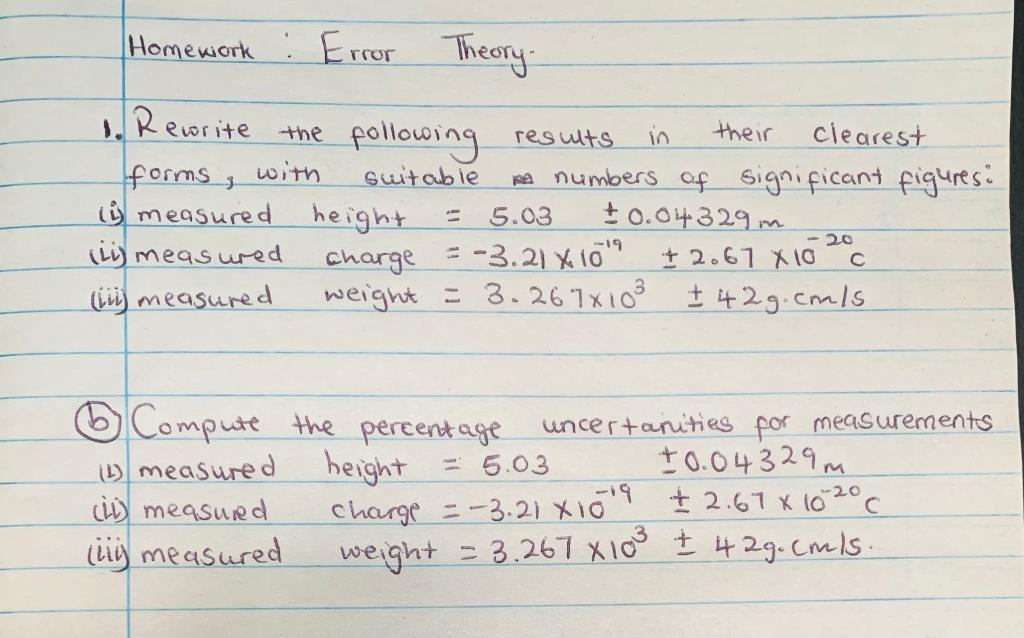 Homework : Error Theory.
1. Rewrite the following results in their clearest
forms, with suitable numbers of significant figures:
(i) measured height = 5.03 ± 0.04329 m
(ii) measured charge = -3.21 × 10⁻¹⁹ ± 2.67 × 10⁻²⁰ C
(iii) measured weight = 3.267×10³ ± 42 g.cm/s
(b) Compute the percentage uncertanities for measurements
(i) measured height = 5.03 ± 0.04329 m
(ii) measured charge = -3.21 × 10⁻¹⁹ ± 2.67 × 10⁻²⁰ C
(iii) measured weight = 3.267 × 10³ ± 42g.cm/s.